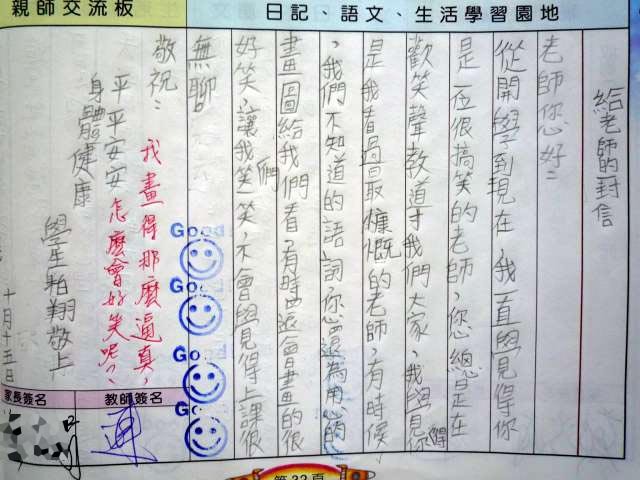 親師交流板
日記、語文、生活學習園地
給老師的封信
老師您好：
從開學到現在，我一直覺得你
是一位很搞笑的老師，您總是在
歡笑聲教道我們大家，我覺得你
是我看過最慷慨的老師，有時候
，我們不知道的語詞，您還為用心的
畫圖給我們看，有時還會畫的很
好笑，讓我們笑笑，不會覺得上課很
無聊
敬祝：
平平安安
身體健康
學生柏翔敬上
十月十五日
我畫得那麼逼真，
怎麼會好笑呢？
Good
Good
Good
Good
家長簽名
教師簽名
第33頁